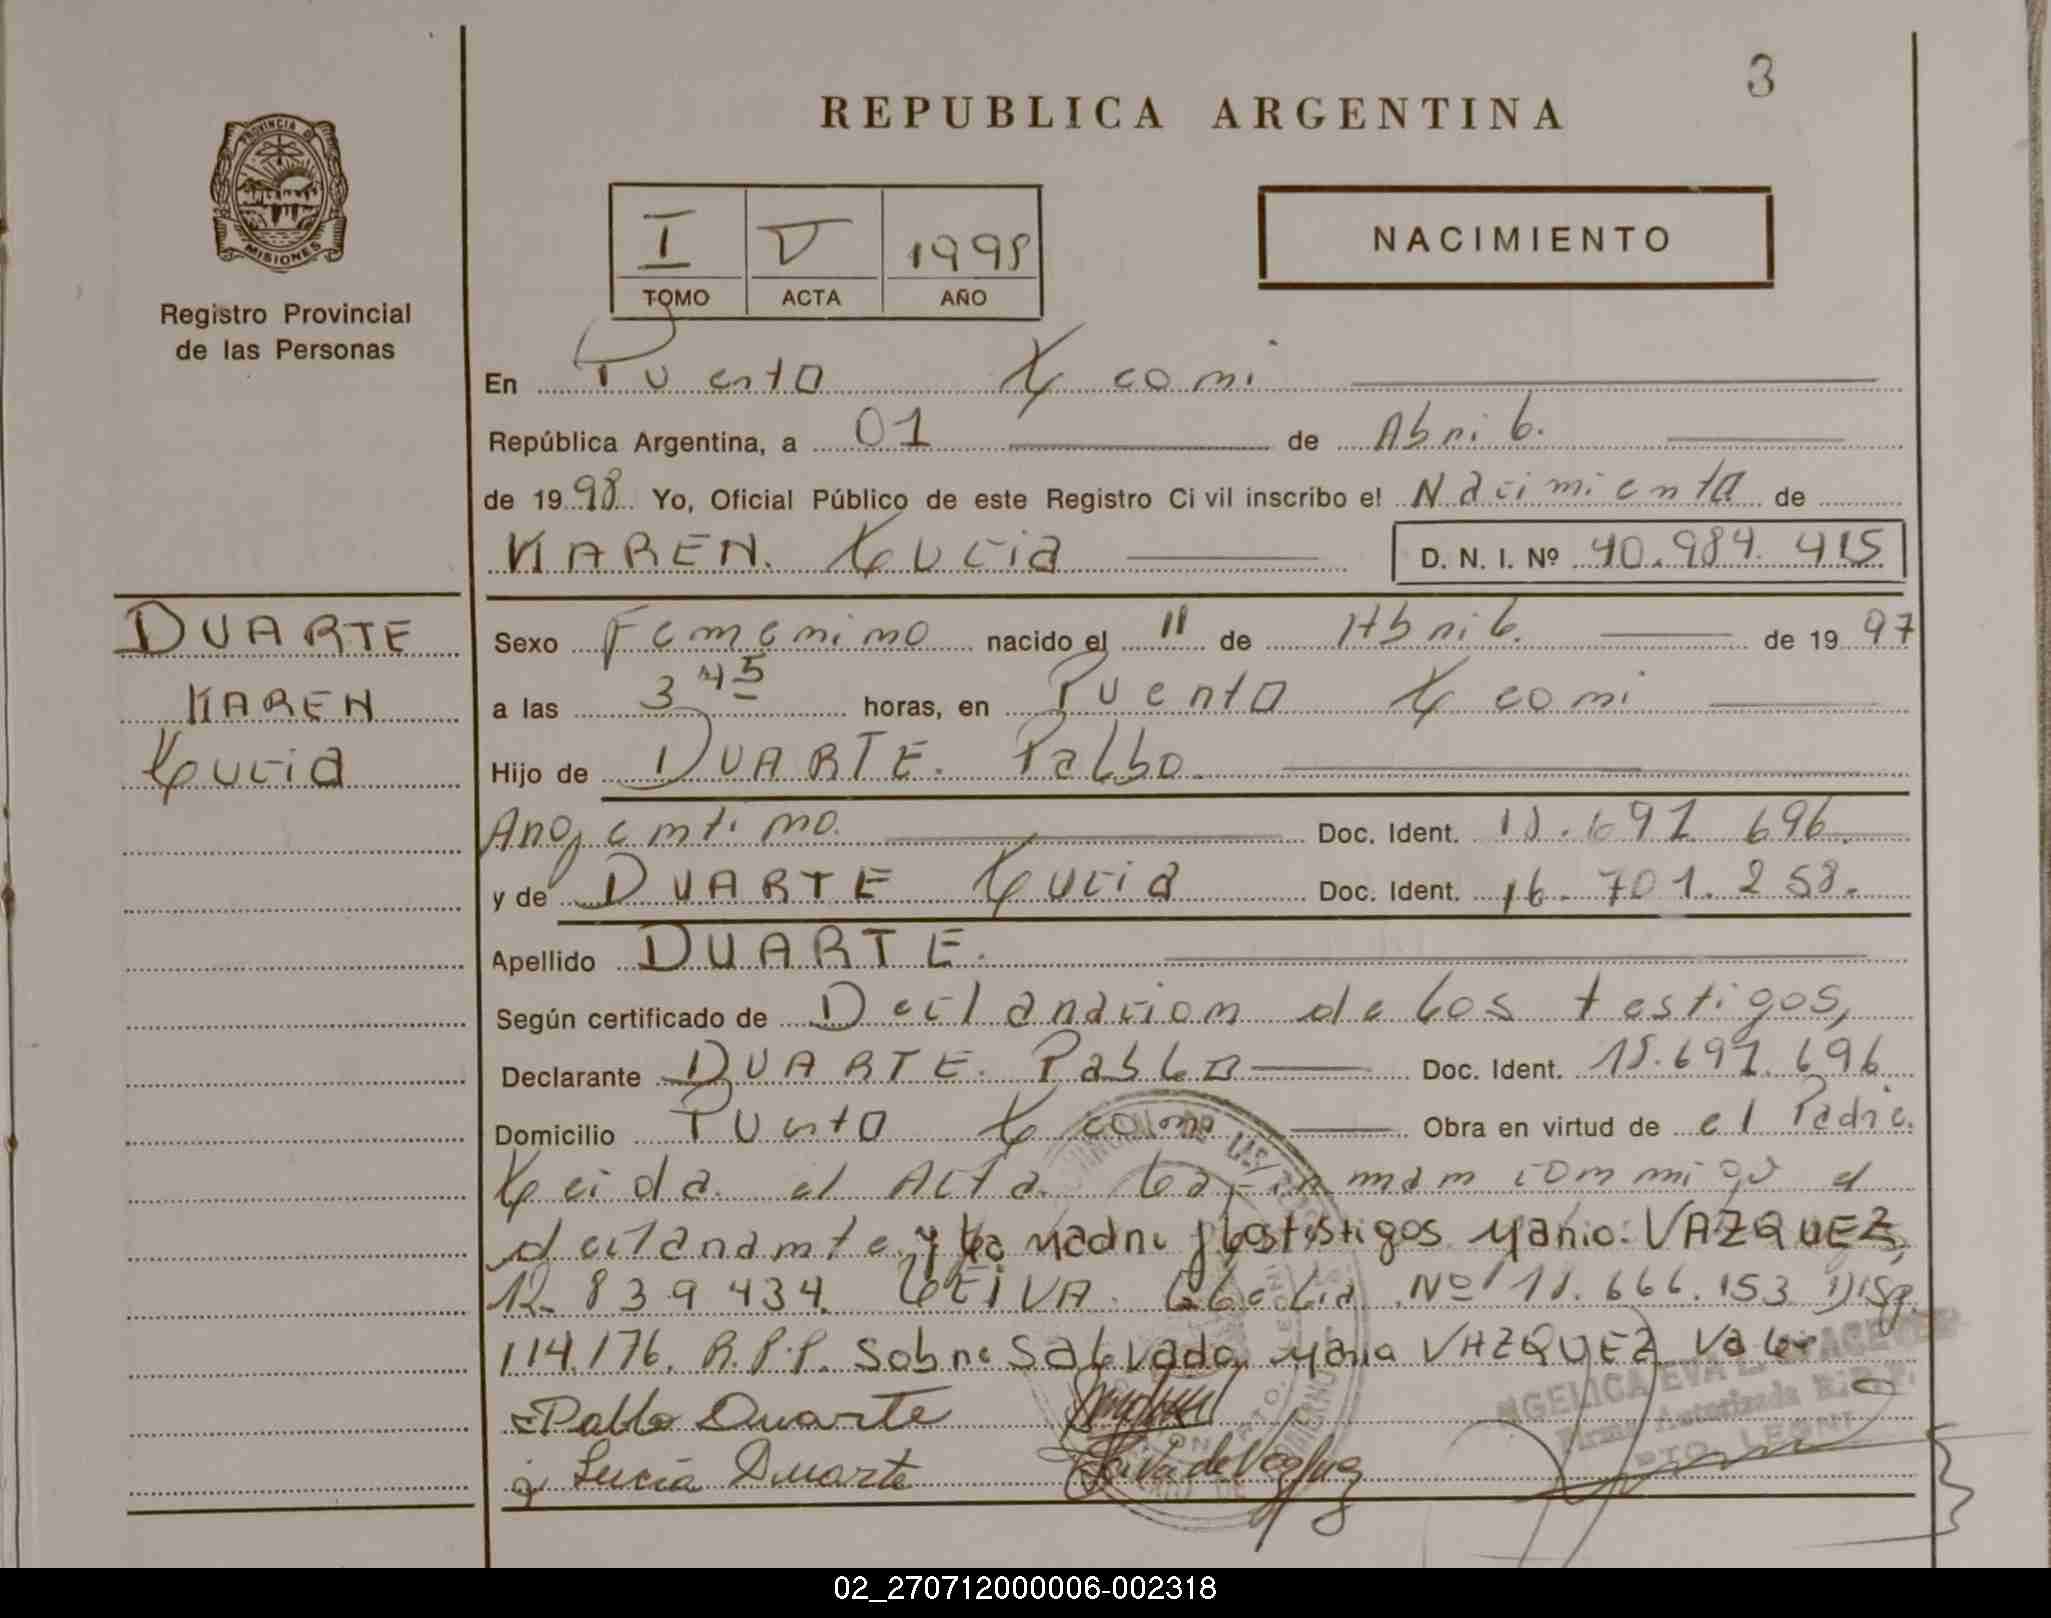 3
REPUBLICA ARGENTINA
PROVINCIA DE
MISIONES
Registro Provincial
de las Personas
I V 1998
TOMO ACTA AÑO
NACIMIENTO
En Puerto Leoni
República Argentina, a 01 de Abril.
de 1998 Yo, Oficial Público de este Registro Civil inscribo el Nacimiento de
KAREN. Lucia D. N. I. Nº 40.984.415
DUARTE
KAREN
Lucia
Sexo Femenino nacido el 11 de Abril. de 1997
a las 3 45 horas, en Puerto Leoni
Hijo de DUARTE. Palbo.
Argentino. Doc. Ident. 18.691 696.
y de DUARTE Lucia Doc. Ident. 16.701.258.
Apellido DUARTE.
Según certificado de Declaracion de los testigos,
Declarante DUARTE. Pablo Doc. Ident. 18.691.696
Domicilio Puerto Leoni Obra en virtud de el Padre.
Leida el Acta la firman conmigo el
declarante y la madre y los testigos Mario: VAZQUEZ,
12.839.434. LEIVA. Nº 11.666.153 Disp.
114.176. R.P.P. Sobre Salvado, Mario VAZQUEZ Vale
Pablo Duarte
Lucia Duarte Leiva de
ANGELICA EVA
Firma Autorizada R.P.P.
PTO. LEONI
02_270712000006-002318